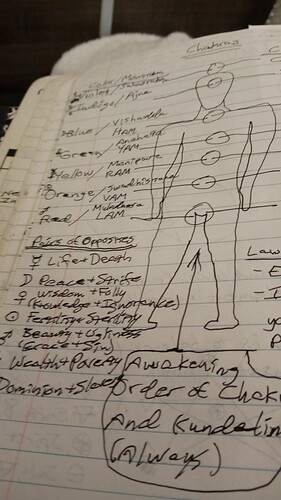 Chakras
Violet/
Indigo/Ajna
Blue/Vishaddha
HAM
Green/Anahatta
YAM
Yellow/Manipura
RAM
Orange/Swadhisthana
VAM
Red/Muladhara
LAM
Pairs of Opposites
☿ Life+Death
☽ Peace+Strife
♀ Wisdom+Folly
(Knowledge+Ignorance)
☉ Fertility+Sterility
♂ Beauty+Ugliness
(Grace+Sin)
Wealth+Poverty
Dominion+
Law
Awakening
Order of Chak
And Kundalin
(Always)